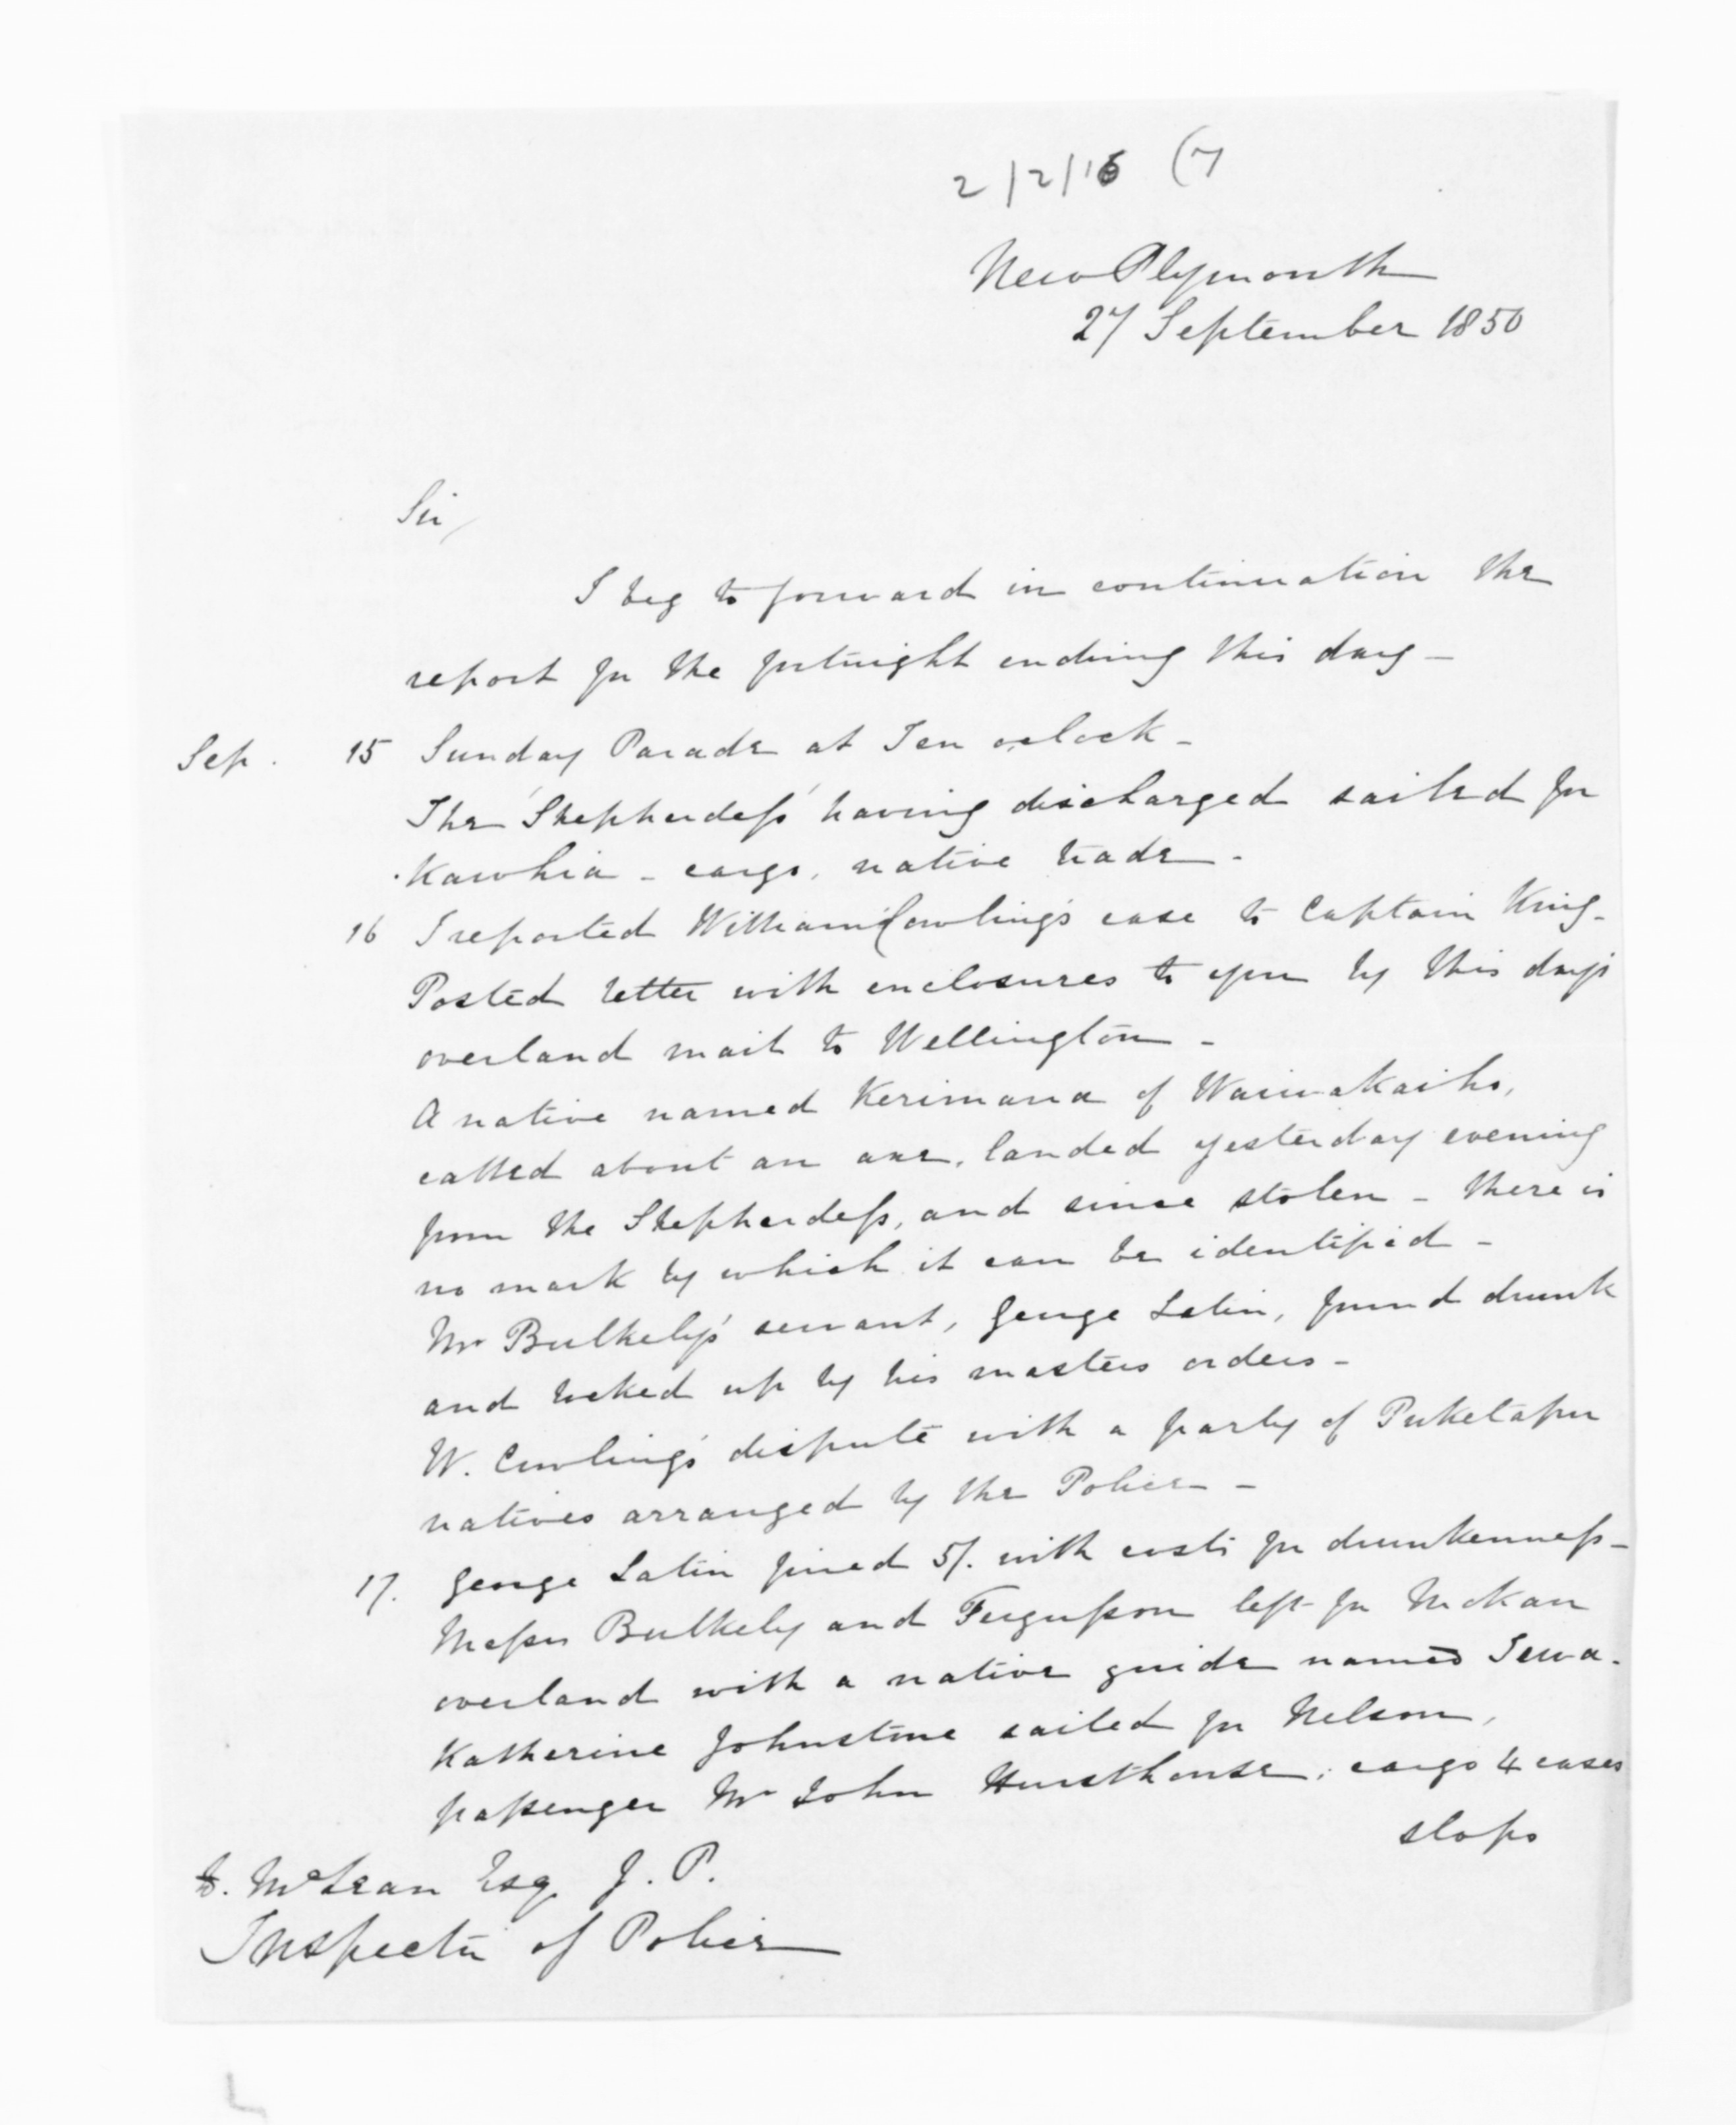 2/2/16 (7
New Plymouth
27 September 1850
Sir,
I beg to forward in continuation the
report for the fortnight ending this day -
Sep. 15 Sunday Parade at Ten oclock -
The 'Shepherdess' having discharged sailed for
Kawhia - cargo, native trade -
16 I reported William Cowling's case to Captain King -
Posted letter with enclosures to you by this day's
overland mail to Wellington -
A native named Kerimana of Waiwakaiho,
called about an axe, landed yesterday evening
from the Shepherdess, and since stolen - there is
no mark by which it can be identified -
Mr Bulkely's servant, George Latin, found drunk
and locked up by his masters orders -
W. Cowling's dispute with a party of Puketapu
natives arranged by the Police -
17. George Latin fined 5/. with costs for drunkenness -
Messrs Bulkely and Fergusson left for Mokau
overland with a native guide named Tewa.
Katherine Johnstone sailed for Nelson,
passenger Mr John Hursthouse; cargo 4 cases
slops
D. McLean Esq. J. P.
Inspector of Police